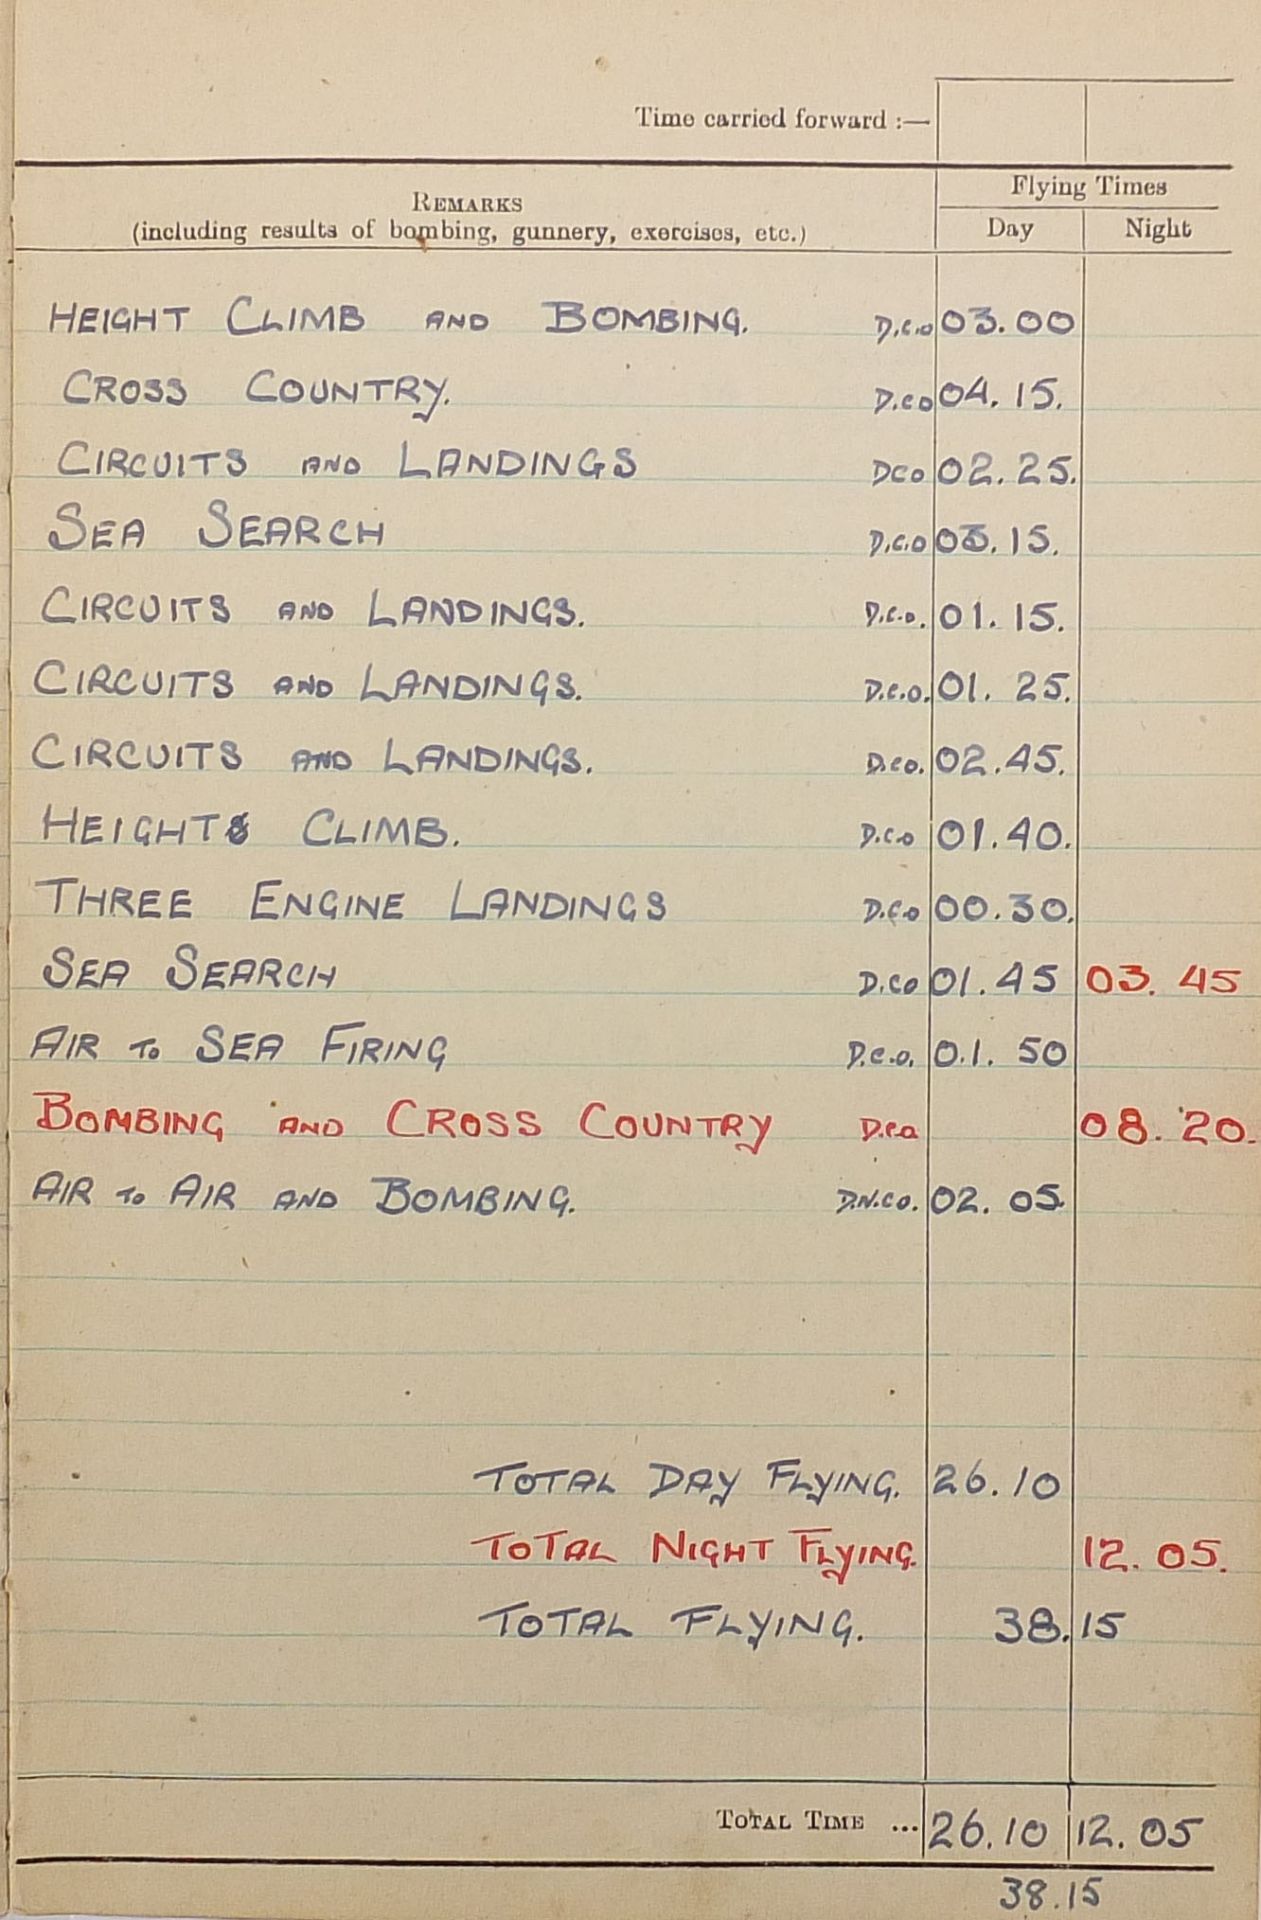 Time carried forward :—
REMARKS
(including results of bombing, gunnery, exercises, etc.)
Flying Times
Day Night
HEIGHT CLIMB AND BOMBING. D.C.O 03.00
CROSS COUNTRY. D.CO 04.15.
CIRCUITS AND LANDINGS DCO 02.25.
SEA SEARCH D.C.O 03.15.
CIRCUITS AND LANDINGS. D.C.O. 01.15.
CIRCUITS AND LANDINGS. D.C.O. 01.25.
CIRCUITS AND LANDINGS. D.CO. 02.45.
HEIGHT CLIMB. D.C.O 01.40.
THREE ENGINE LANDINGS D.C.O 00.30.
SEA SEARCH D.CO 01.45 03.45
AIR TO SEA FIRING D.C.O. 0.1.50
BOMBING AND CROSS COUNTRY D.C.O 08.20.
AIR TO AIR AND BOMBING. D.N.CO. 02.05.
TOTAL DAY FLYING. 26.10
TOTAL NIGHT FLYING. 12.05.
TOTAL FLYING. 38.15
TOTAL TIME ... 26.10 12.05
38.15